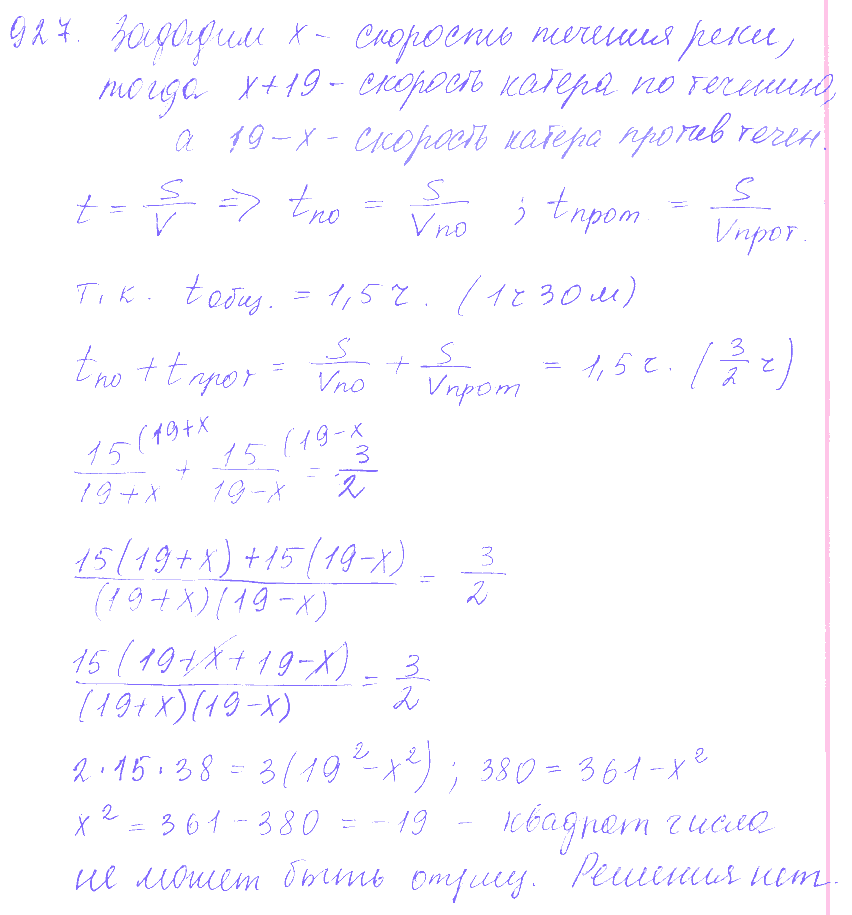 927. Зададим x - скорость течения реки,
тогда x+19 - скорость катера по течению,
а 19-x - скорость катера против течен.
t = S/V => tпо = S/Vпо ; tпрот. = S/Vпрот.
т.к. tобщ. = 1,5 ч. (1ч 30 м)
tпо + tпрот = S/Vпо + S/Vпрот = 1,5 ч. (3/2 ч)
15(19+x/19+x + 15(19-x/19-x = 3/2
15(19+x)+15(19-x)/(19+x)(19-x) = 3/2
15(19+x+19-x)/(19+x)(19-x) = 3/2
2·15·38 = 3(19²-x²) ; 380 = 361-x²
x² = 361-380 = -19 - квадрат числа
не может быть отриц. Решения нет.